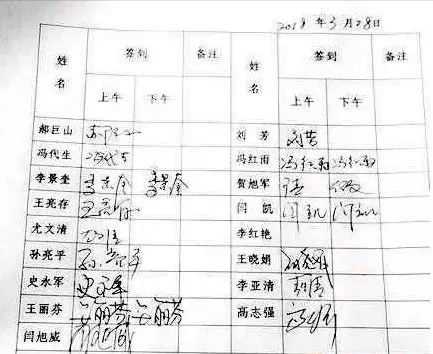 2018年3月28日
姓名 签到 备注 姓名 签到 备注
上午 下午 上午 下午
郝巨山 刘芳 刘芳
冯代生 冯代生 冯红雨 冯红雨 冯红雨
李景奎 李景奎 李景奎 贺旭军
王亮存 王亮存 闫凯 闫凯 闫凯
尤文清 李红艳
孙亮平 孙亮平 王晓娟
史永军 史永军 李亚清
王丽芬 王丽芬 王丽芬 高志强
闫旭威